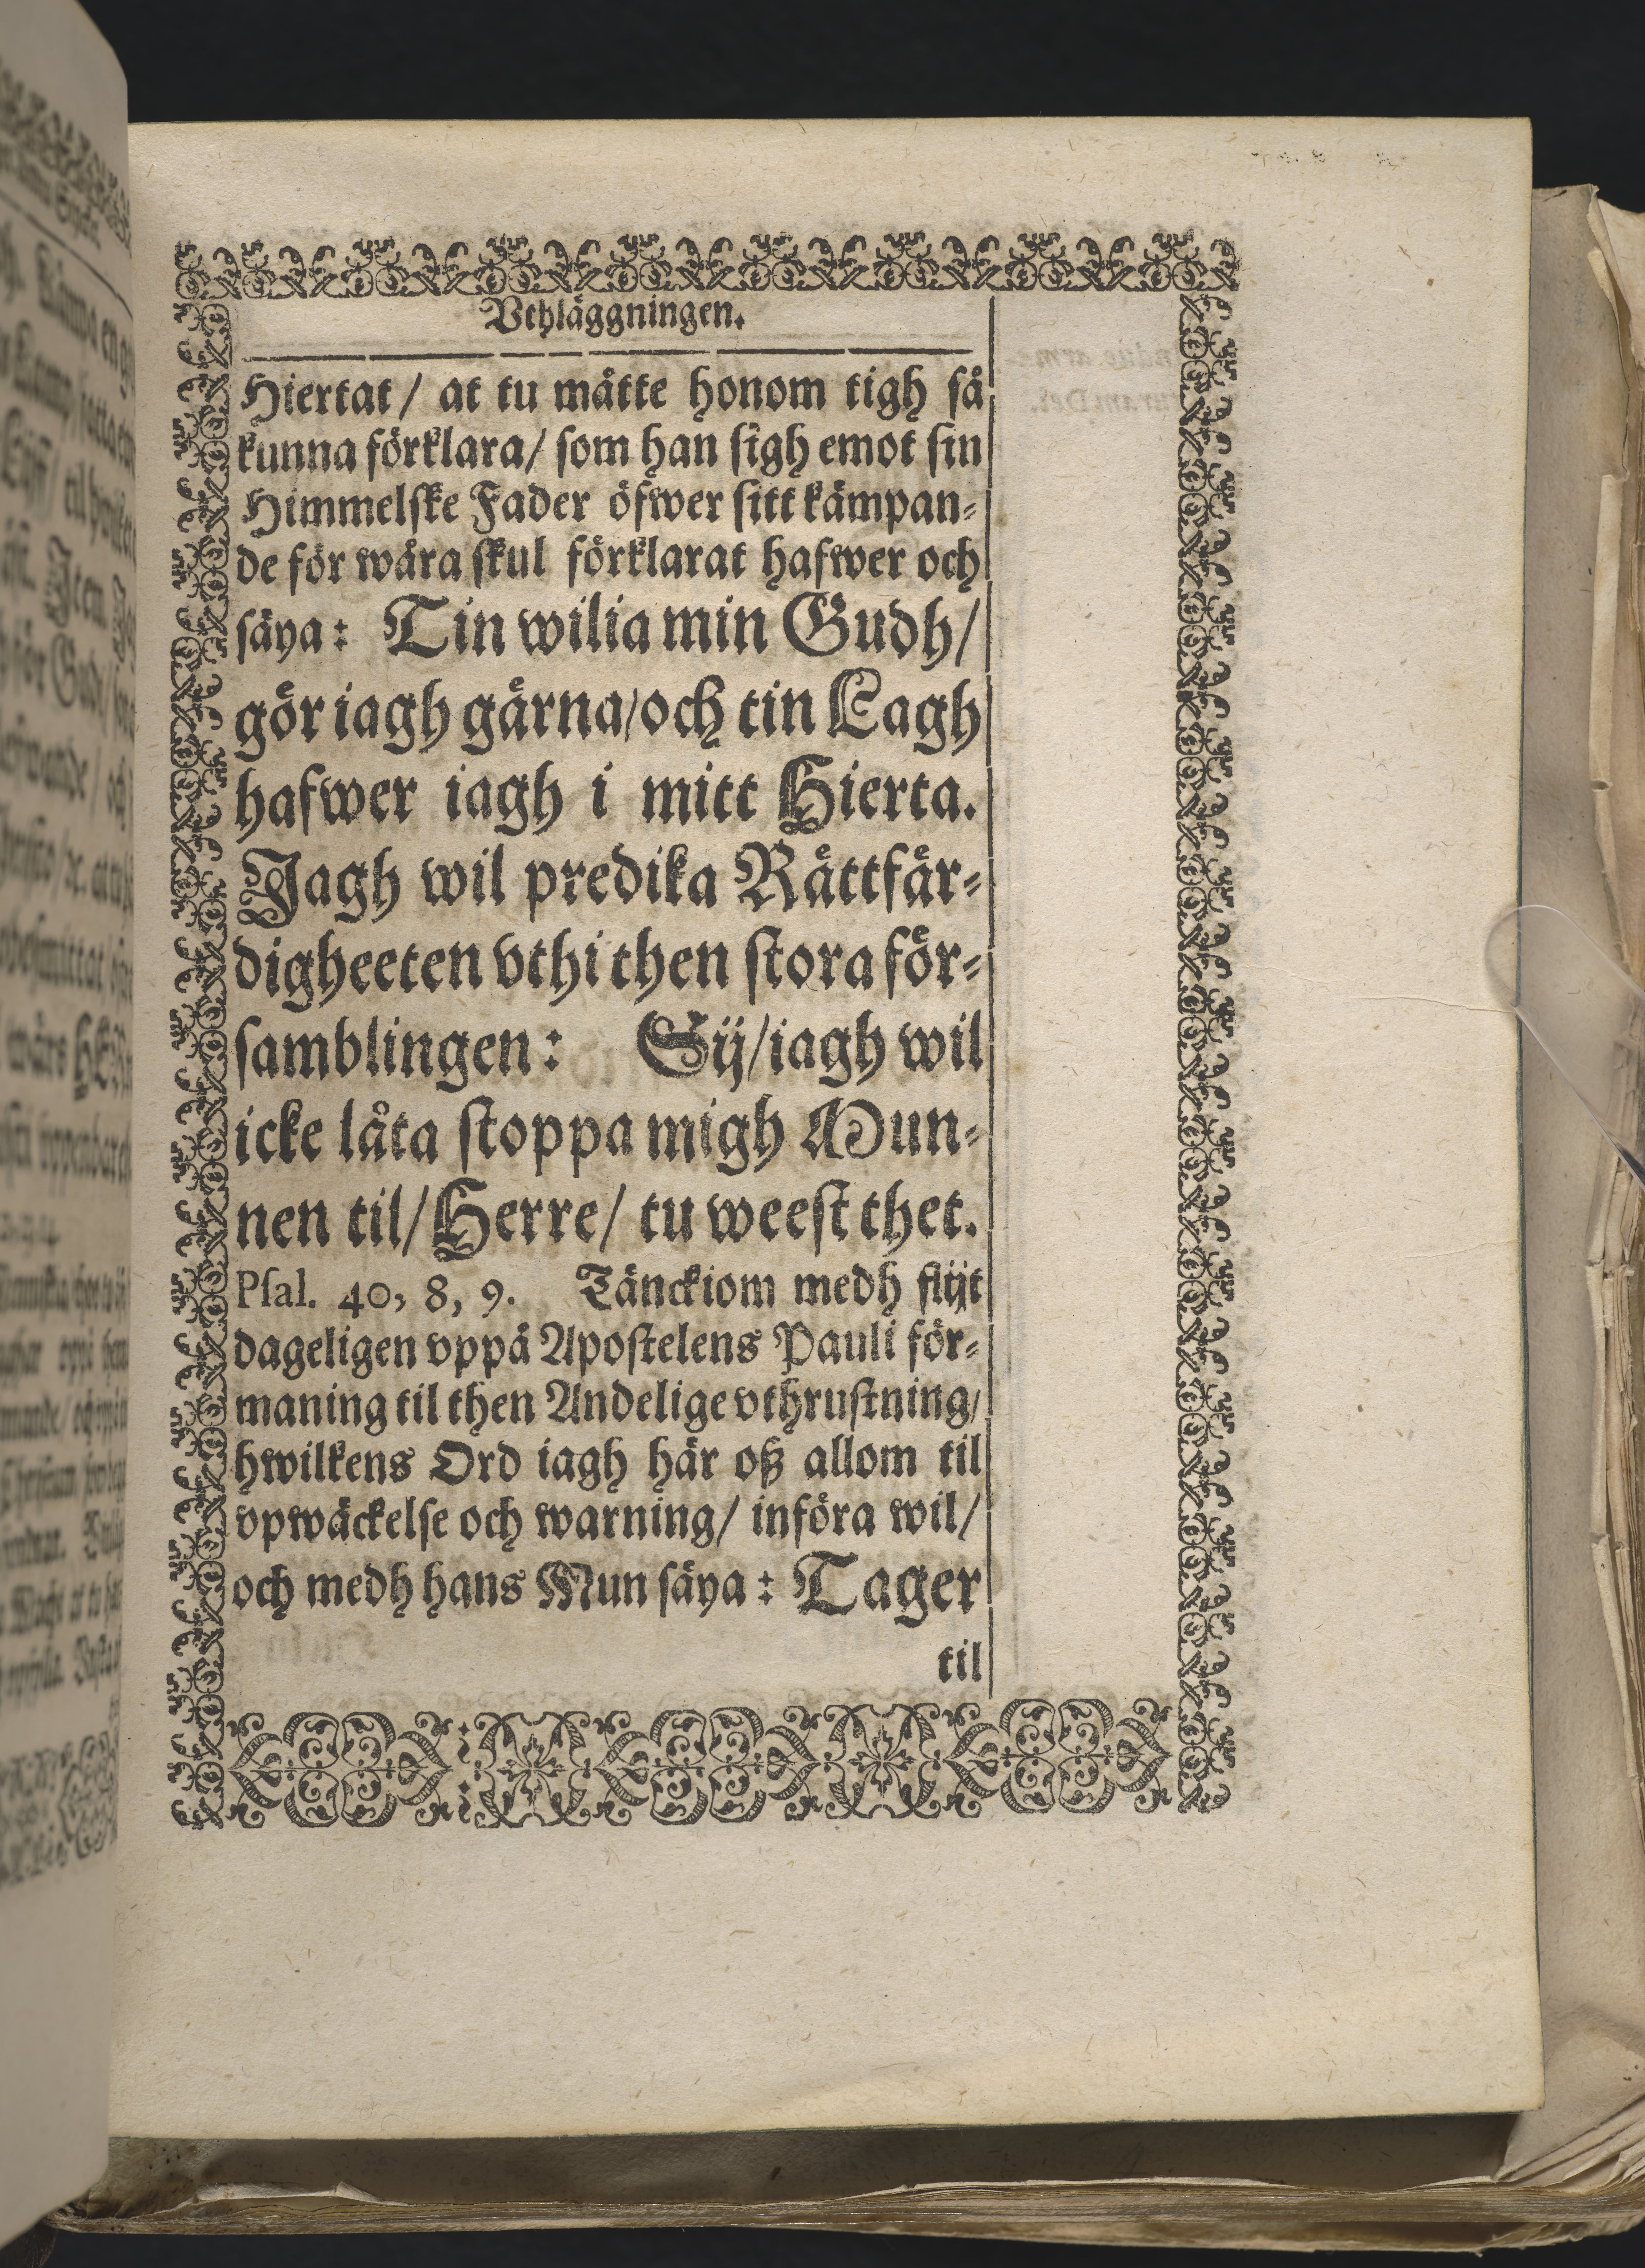 Vthläggningen.
Hiertat / at tu måtte honom tigh så
kunna förklara / som han sigh emot sin
Himmelske Fader öfwer sitt kämpan-
de för wåra skul förklarat hafwer och
säya: Tin wilia min Gudh /
gör iagh gärna / och tin Lagh
hafwer iagh i mitt Hierta.
Jagh wil predika Rättfär-
digheeten vthi then stora för-
samblingen: Sij / iagh wil
icke låta stoppa migh Mun-
nen til / Herre / tu weest thet.
Psal. 40, 8, 9. Tänckiom medh flijt
dageligen vppå Apostelens Pauli för-
maning til then Andelige vthrustning /
hwilkens Ord iagh här oß allom til
vpwäckelse och warning / införa wil /
och medh hans Mun säya: Tager
til